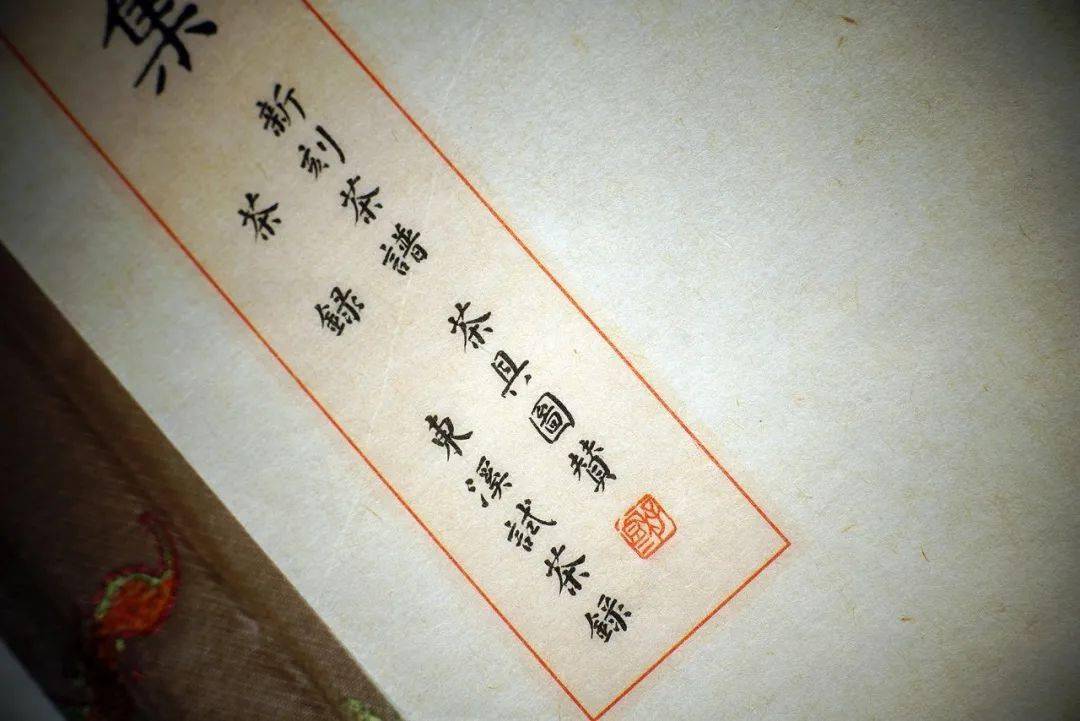 集
新刻茶譜
茶具圖贊
茶録
東溪試茶録